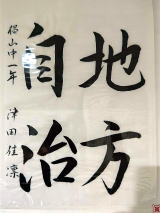 地方
自治
協山中一年 津田佳凜